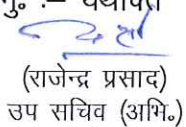 नु॰ :– यथोक्त
(राजेन्द्र प्रसाद)
उप सचिव (अभि॰)